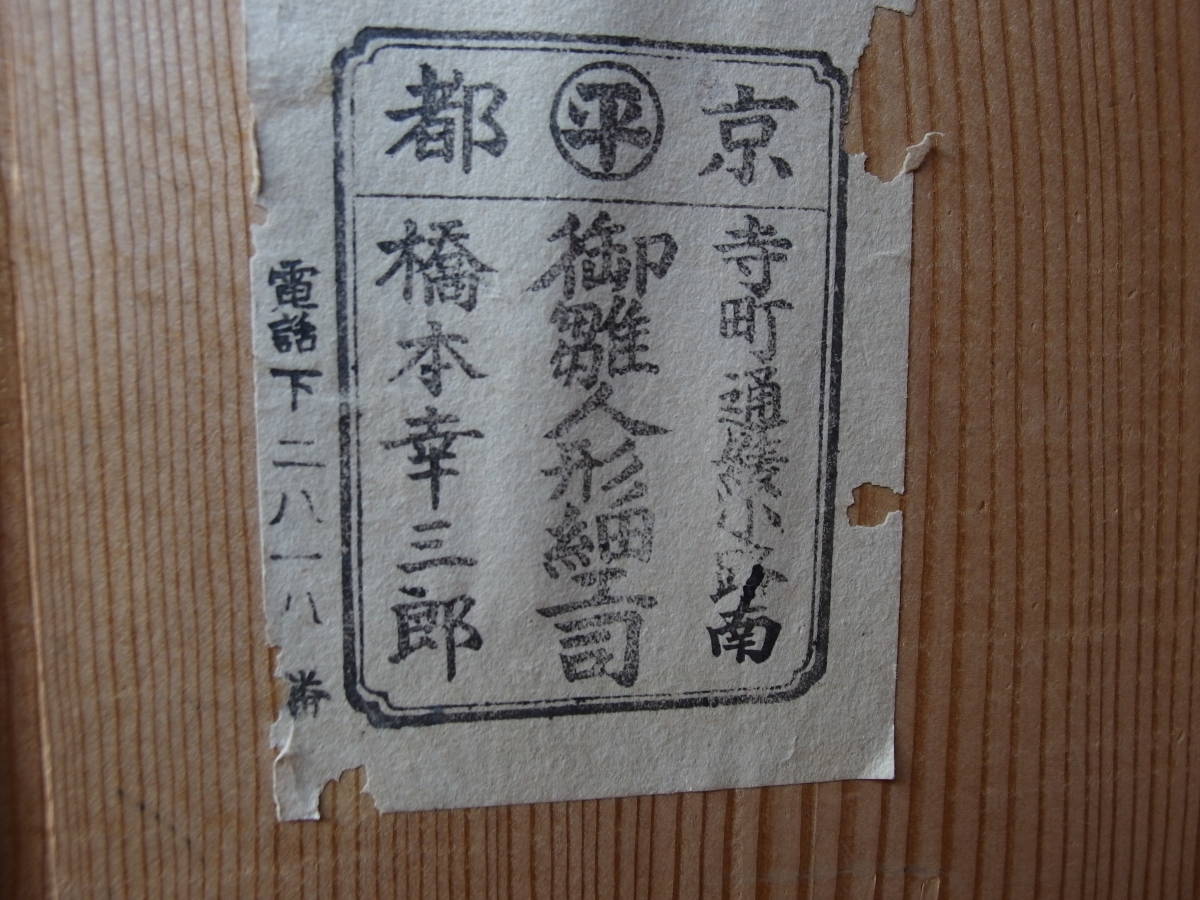 京㊥都
寺町通綾小路南
御雛人形細工司
橋本幸三郎
電話下二八一八番